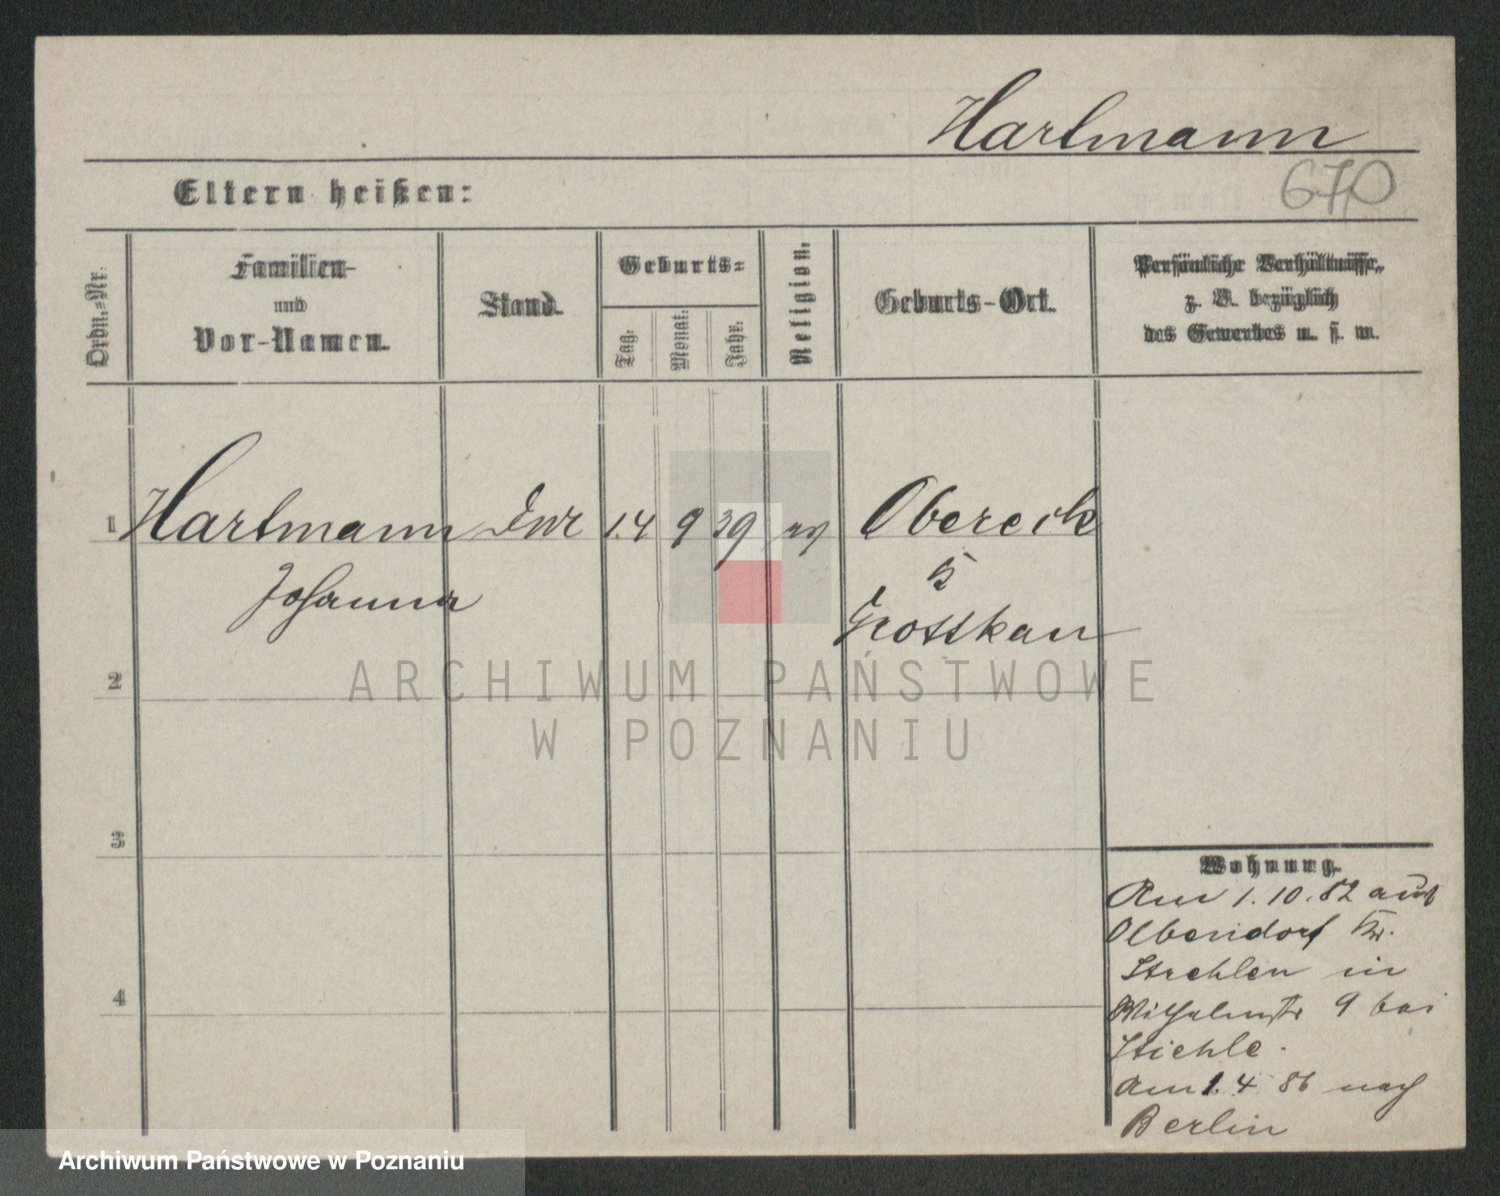 Hartmann
670
Eltern heißen:
Ordn.-Nr.
Familien-
und
Vor-Namen.
Stand.
Geburts-
Tag.
Monat.
Jahr.
Religion.
Geburts-Ort.
Persönliche Verhältnisse,
z. B. bezüglich
des Gewerbes u. s. w.
1 Hartmann 14 9 39 ev Obereck
Johanna
Grottkau
2
3
4
Wohnung.
Am 1.10.82 aus
Olbendorf Kr.
Strehlen in
Wilhelmstr 9 bei
Stiehle.
Am 1.4 86 nach
Berlin
ARCHIWUM PAŃSTWOWE
W POZNANIU
Archiwum Państwowe w Poznaniu